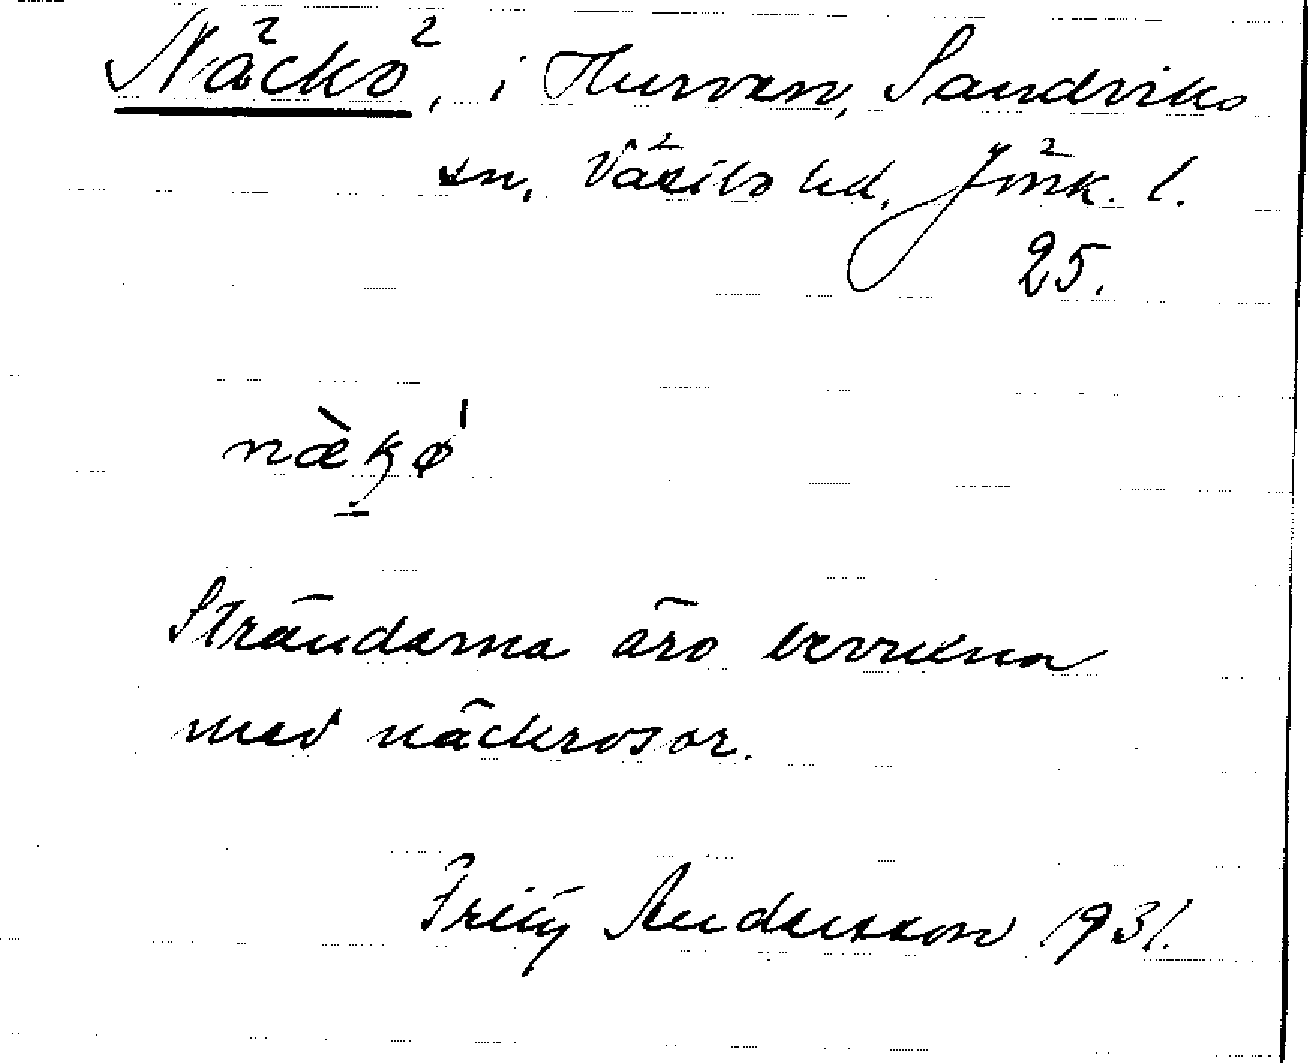 Näckö, i Hurven, Sandviks
sn, Västbo hd, Jönk. l.
25.
næ̀kø̍
Stränderna äro bevuxna
med näckrosor.
Fritz Andersson 1931.